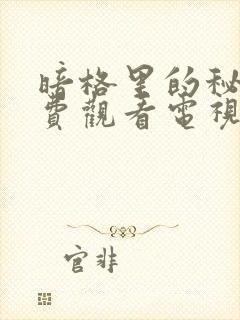 暗格里的秘
費觀看電視
官非